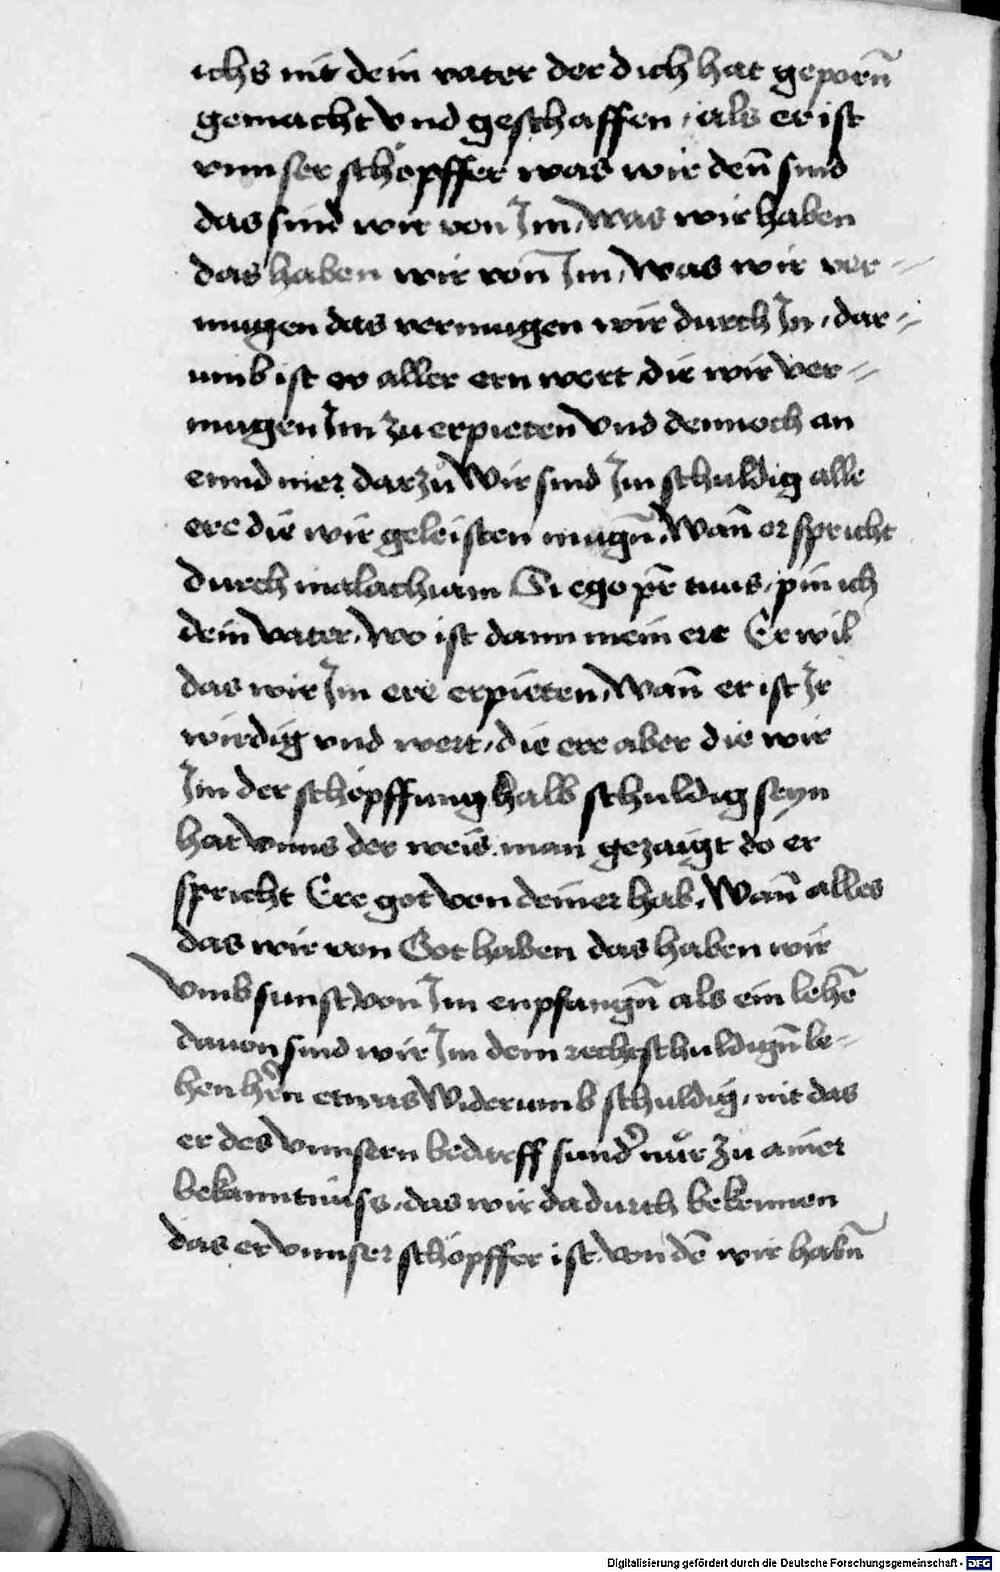 ichs nit dein vater der dich hat geporn̄
gemacht vnd geschaffen, als er ist
vnnser schöpffer was wir den̄ sind
das sind wir von Im, was wir haben
das haben wir von Im, was wir ver=
mugen das vermugen wir durch In, dar=
umb ist er aller ern wert die wir ver=
mugen Im zu erpieten vnd dennoch an
ennd mer darzů Wir sind Im schuldig alle
ere die wir geleisten mugn̄, Wan̄ er spricht
durch malachiam Si ego pr̄ tuus, pin ich
dein vater, wo ist dann mein ere Er wil
das wir Im ere erpieten, Wan̄ er ist Ir
wirdig vnd wert, die ere aber die wir
Im der schöpffung halb schuldig seyn
hat vnns der weis man gezaigt do er
spricht Ere got von deiner hab, Wan̄ alles
das wir von Got haben das haben wir
vmb sunst von Im enpfangn̄ als ein lehē
dauon sind wir Im dem rechtschuldign̄ le=
hen hr̄n etwas Widerumb schuldig, nit das
er des vnnsern bedarff sund̄ nůr zu ainer
bekanntnuss, das wir dadurch bekennen
das er vnnser schöpffer ist, von dē wir habn̄
Digitalisierung gefördert durch die Deutsche Forschungsgemeinschaft - DFG